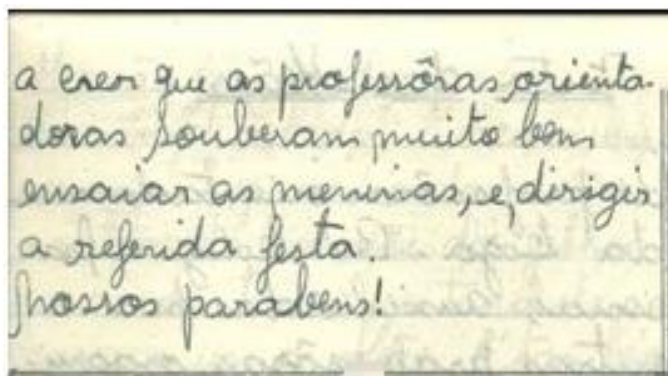 a crer que as professôras, orienta-
doras souberam muito bem
ensaiar as meninas, e, dirigir
a referida festa.
Nossos parabens!